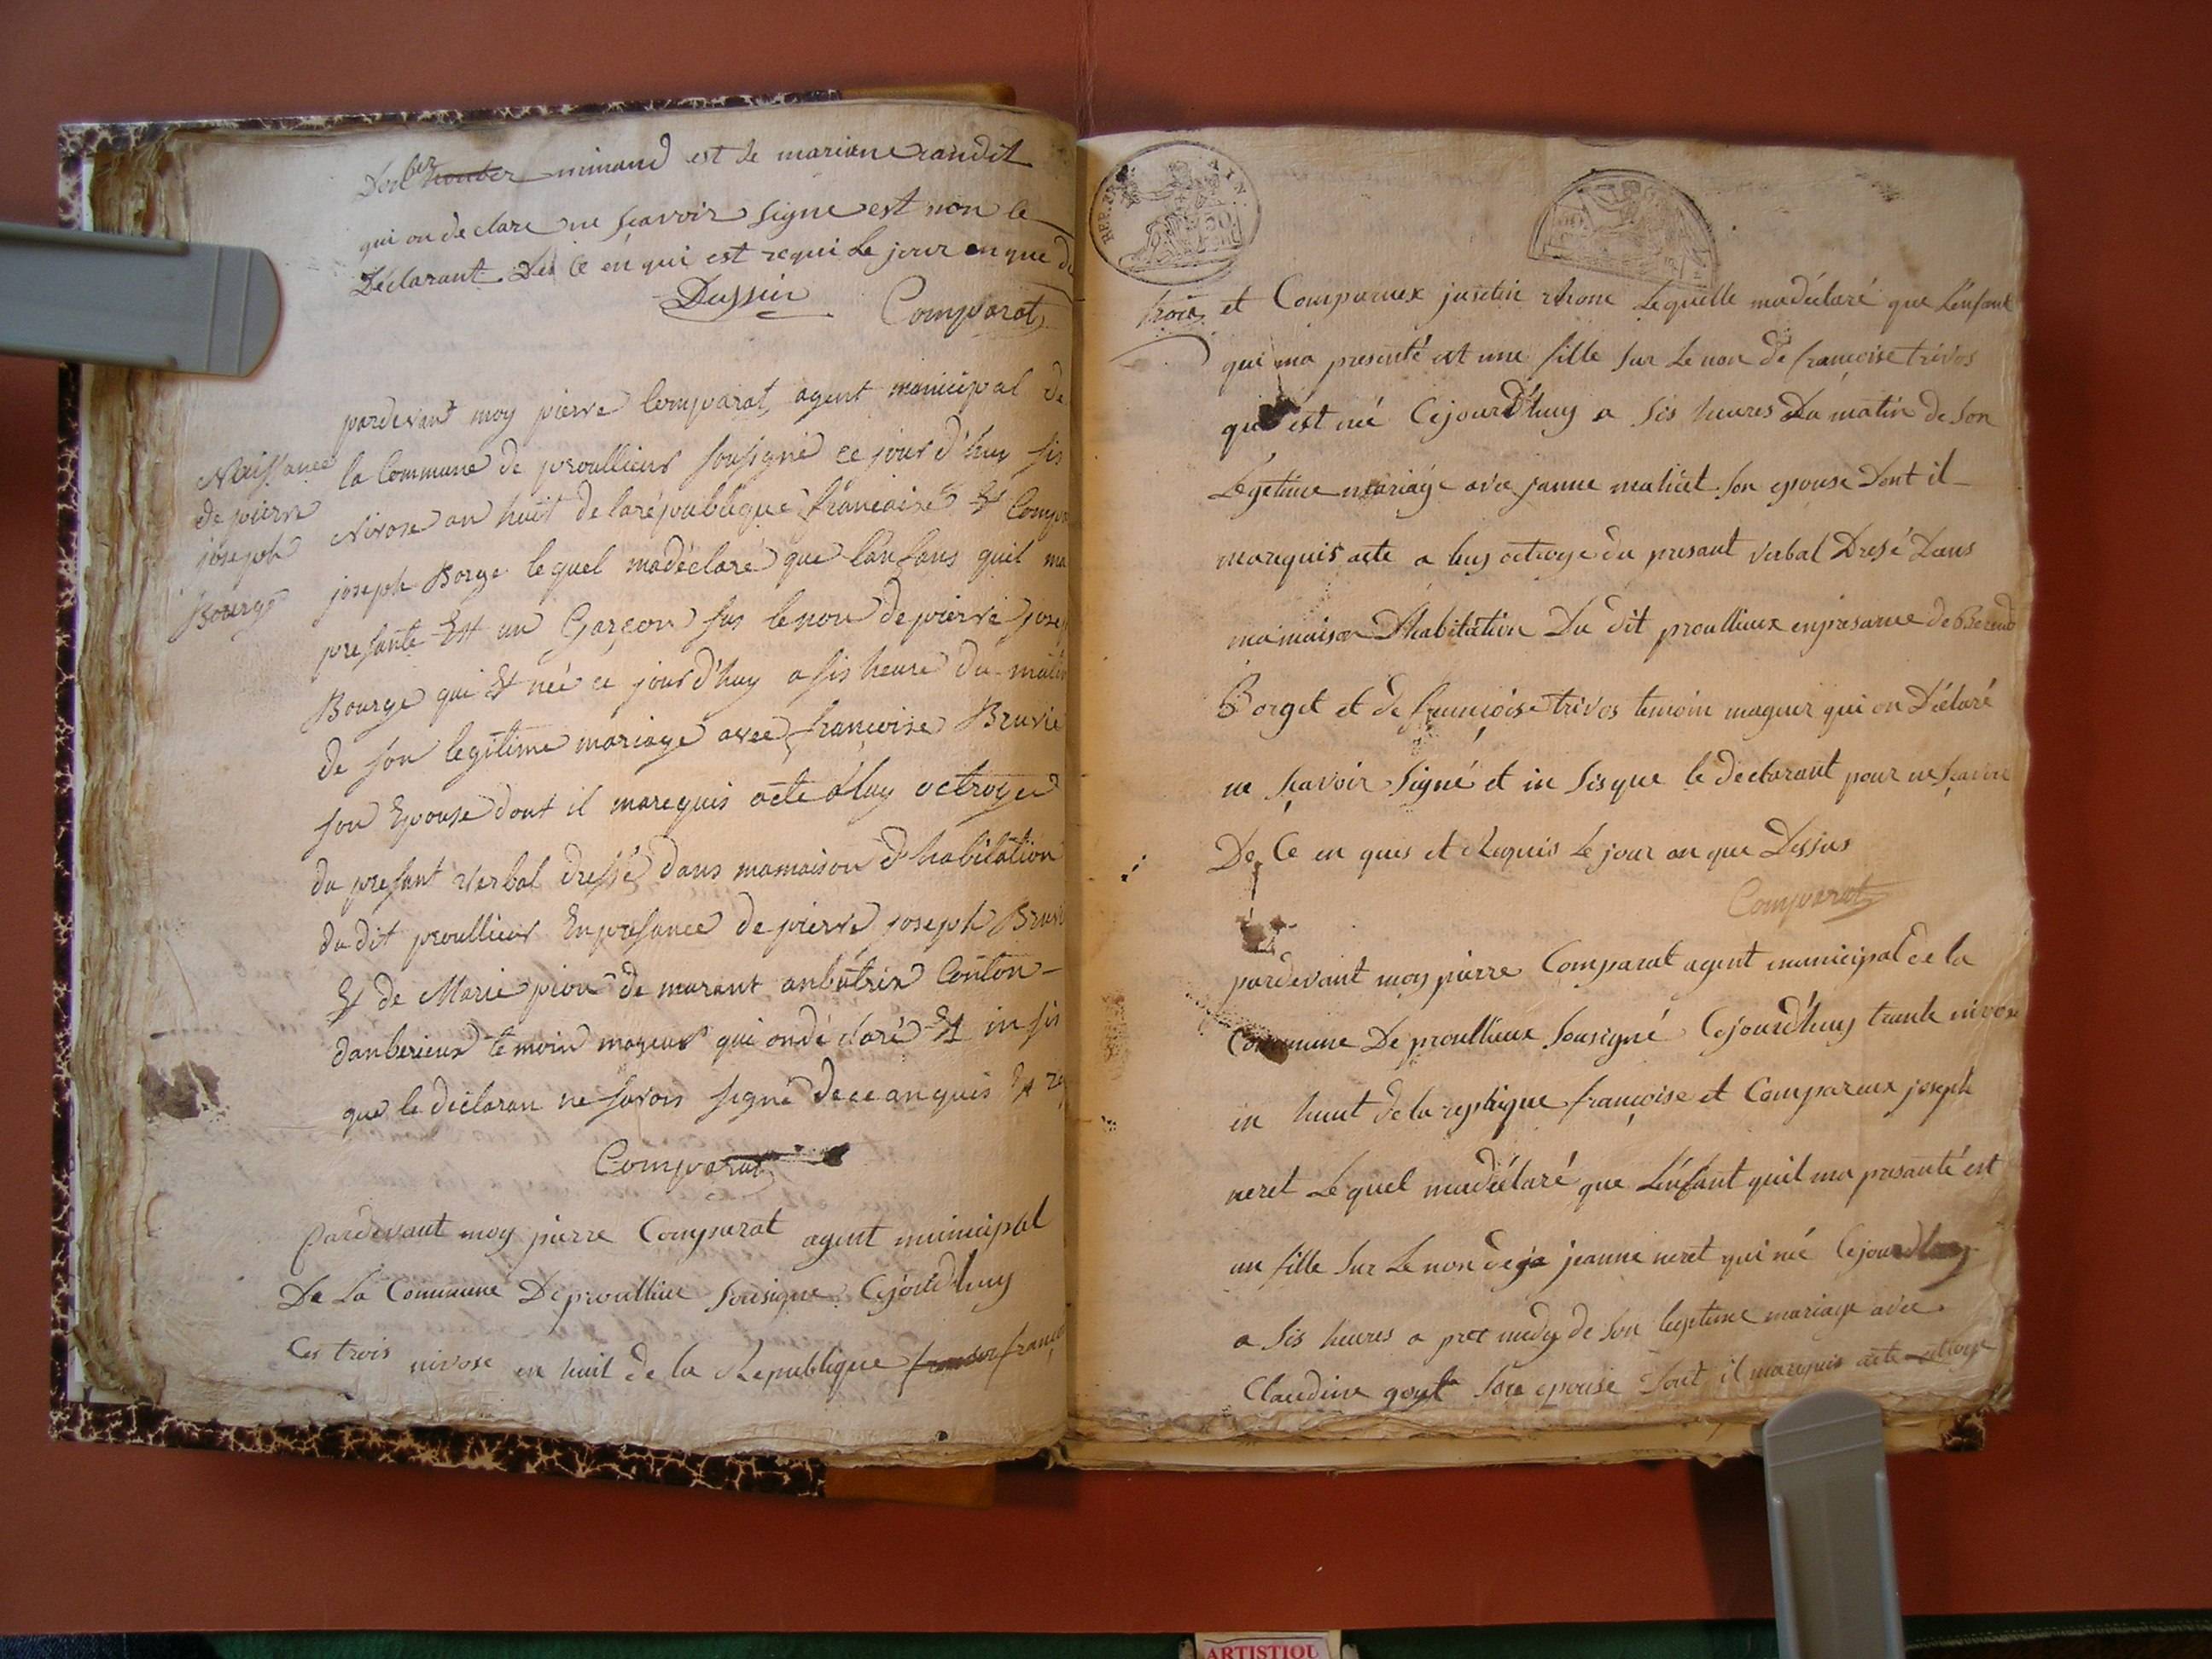 minand est de mariane randit
qui on de clare ne scavoir signe est non le
Déclarant Dei Ce én qui est requi Le jour en que
Dessin Comparat
pardevant moy pierre Comparat agent municipal de
la Commune de proullieur sousigné ce jour d'huy sis
Nivose an huit de la république francaise Et
joseph Borge lequel madéclaré que lanfans quil ma
presanté Est un Garçon sus le non de pierre
Bourge qui Est née ce jourd'huy a sis heure du matin
de son legitime mariage avec francoise
son Epouse dont il marequis acte a luy octroyer
du presant verbal dressé dans mamaison d'habitation
du dit proullieur En presance de pierre joseph
Et de Marie de
danberieux temoin mageur qui on dé claré Et in sis
que le déclaran ne savoir signé de ce an quis Et
Comparat
Naissance
de pierre
joseph
Bourge
Pardevant moy pierre Comparat agent municipal
De La Commune De proullieu sousigne Cejourdhuy
Ces trois nivose en huit de la Republique
REP. FRA.
AIN.
50
trois
et Comparuex justin Lequelle madéclaré que L'énfant
qui ma presenté est une fille sur Le non de francoise trivos
qui est né Cejourd'huy a sis heures Du matin de son
Légetime mariage avec janne son epouse Dont il
marequis acte a luy octroye du presant verbal Dresé Dans
mamaison D'habitation Du dit proullieux enpresance de
Borget et de françoise trivos temoin mageur qui on Déclaré
ne sçavoir Signé et in sisque le declarant pour ne scavoir
De Ce en ques et Requis Le jour an que Dessus
Comparat
pardevant moy pierre Comparat agent municipal de la
Commune De proullieux Sousigné Cejourd'huy trante nivose
in huut de la replique françoise et Compareux joseph
neret Le quel madéclaré que L'énfant quil ma presanté est
un fille Sur Le non de ja jeanne neret qui né Cejourdhuy
a Sis heures a pret medy de Son legetime mariage avec
Claudine son epouse Dont il marequis acte octroye
ARTISTIQU